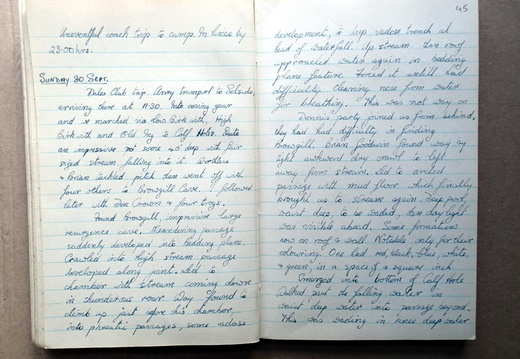 Uneventful coach trip to camp. In lines by
23.00 hrs.
SUNDAY 30 SEPT.
Dales Club trip. Army transport to Selside,
arriving there at 11:30. Into caving gear
and we marched via Low Birkwith, High
Birkwith and Old Ing to Calf Holes.
are impressive 40' deep with fair
sized stream falling into it.
& Brian tackled pitch then went off with
four others to Browgill Cave. I followed
later with & four
Found Browgill, impressive large
resurgence cave. Meandering passage
suddenly developed into bedding plane.
Crawled into high stream passage
developed along joint. Led to
chamber with stream coming down
in thunderous roar. Way found to
climb up just before this chamber,
into phreatic passages, some vadose
45
development, to deep vadose trench at
head of waterfall. Up stream the roof
approached water again in bedding
plane feature. Forced it until had
difficulty clearing nose from water
for breathing. This was not way on
Dennis' party joined us from behind,
they had had difficulty in finding
Browgill. Brian Goodwin found way by
tight awkward dry crawl to left
away from stream. Led to arched
passage with mud floor which finally
brought us to stream again. Deep pool,
waist deep, to be waded, then daylight
was visible ahead. Some formations
now on roof & wall. Notable only for their
colouring. One had red, black, blue, white,
& green, in a space of a square inch
Emerged into bottom of Calf Hole
Walked past the falling water in
waist deep water into passage beyond.
This was wading in knee deep water